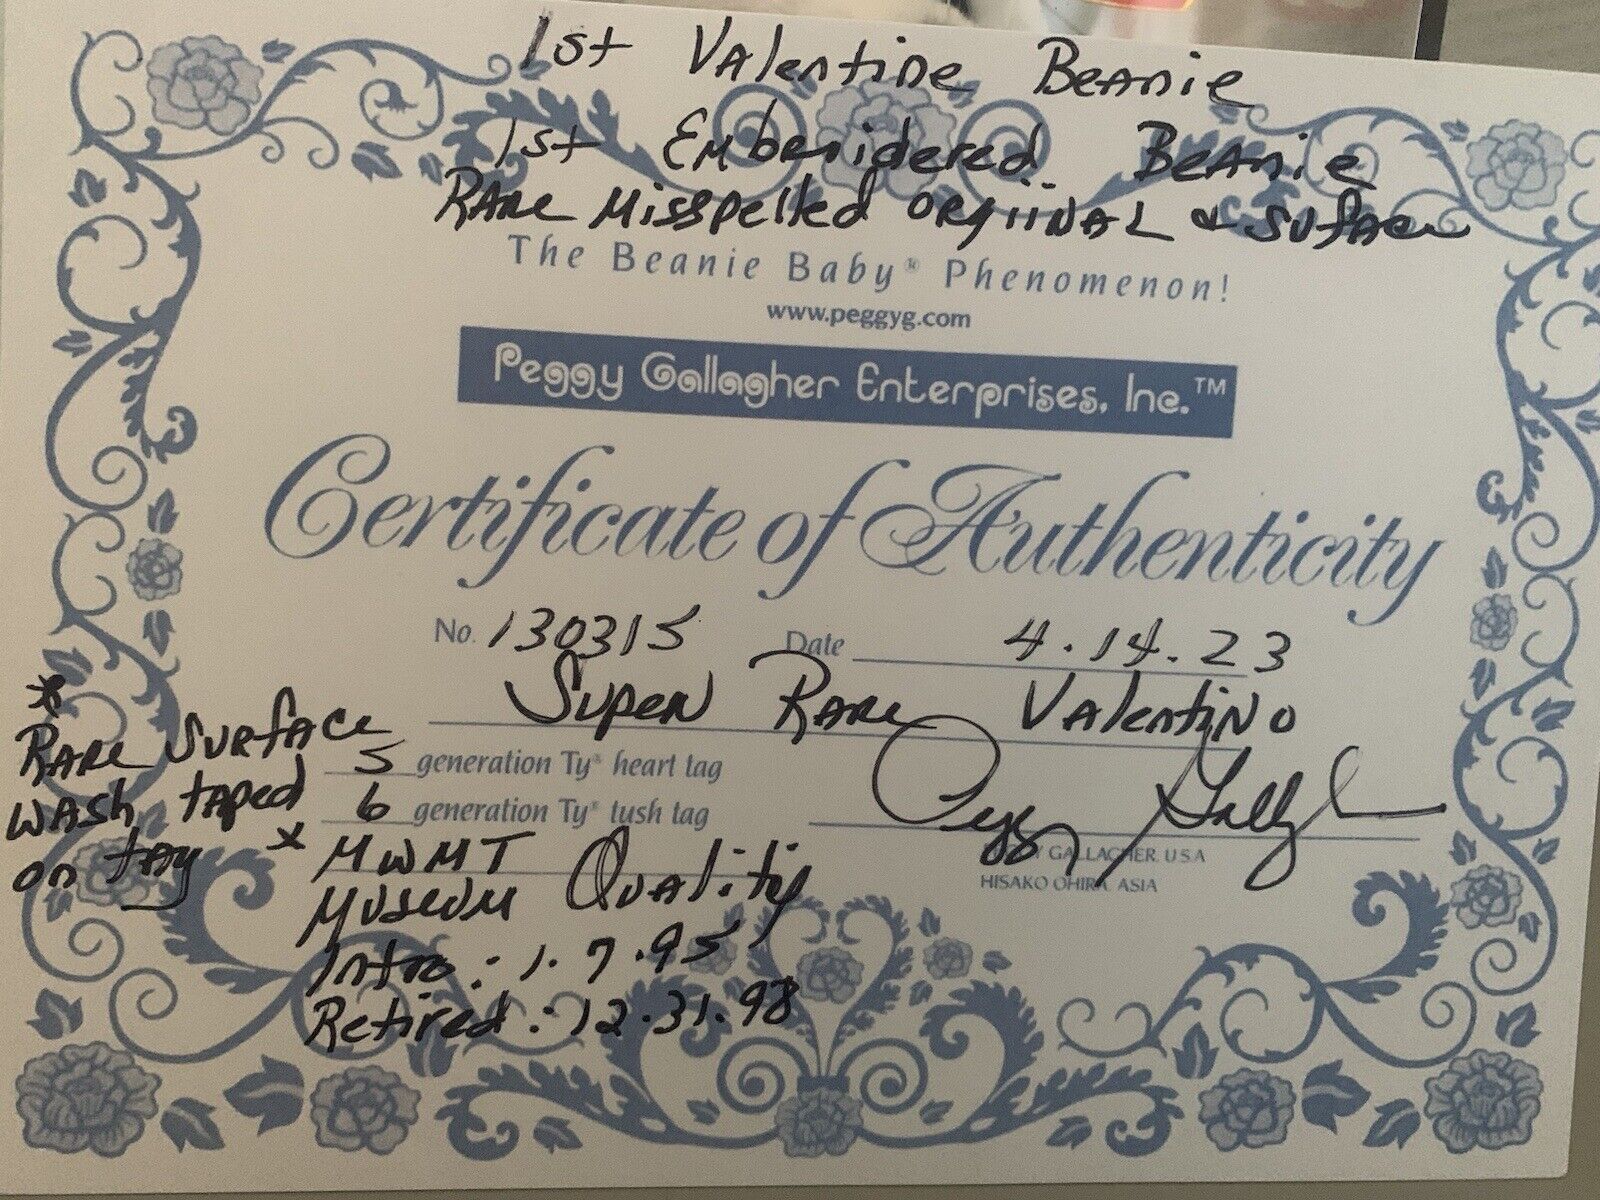 1st Valentine Beanie
1st Emberidered Beanie
Rare Misspelled ORgiiNAL & Suface
The Beanie Baby® Phenomenon!
www.peggyg.com
Peggy Gallagher Enterprises, Inc.™
Certificate of Authenticity
No. 130315 Date 4.14.23
Super Rare Valentino
5 generation Ty® heart tag
6 generation Ty® tush tag
* Rare Surface
wash taped
on tag *
MWMT
Museum Quality
Intro: 1.7.95
Retired: 12.31.98
Peggy Gallagher
GALLAGHER, U.S.A
HISAKO OHIRA, ASIA